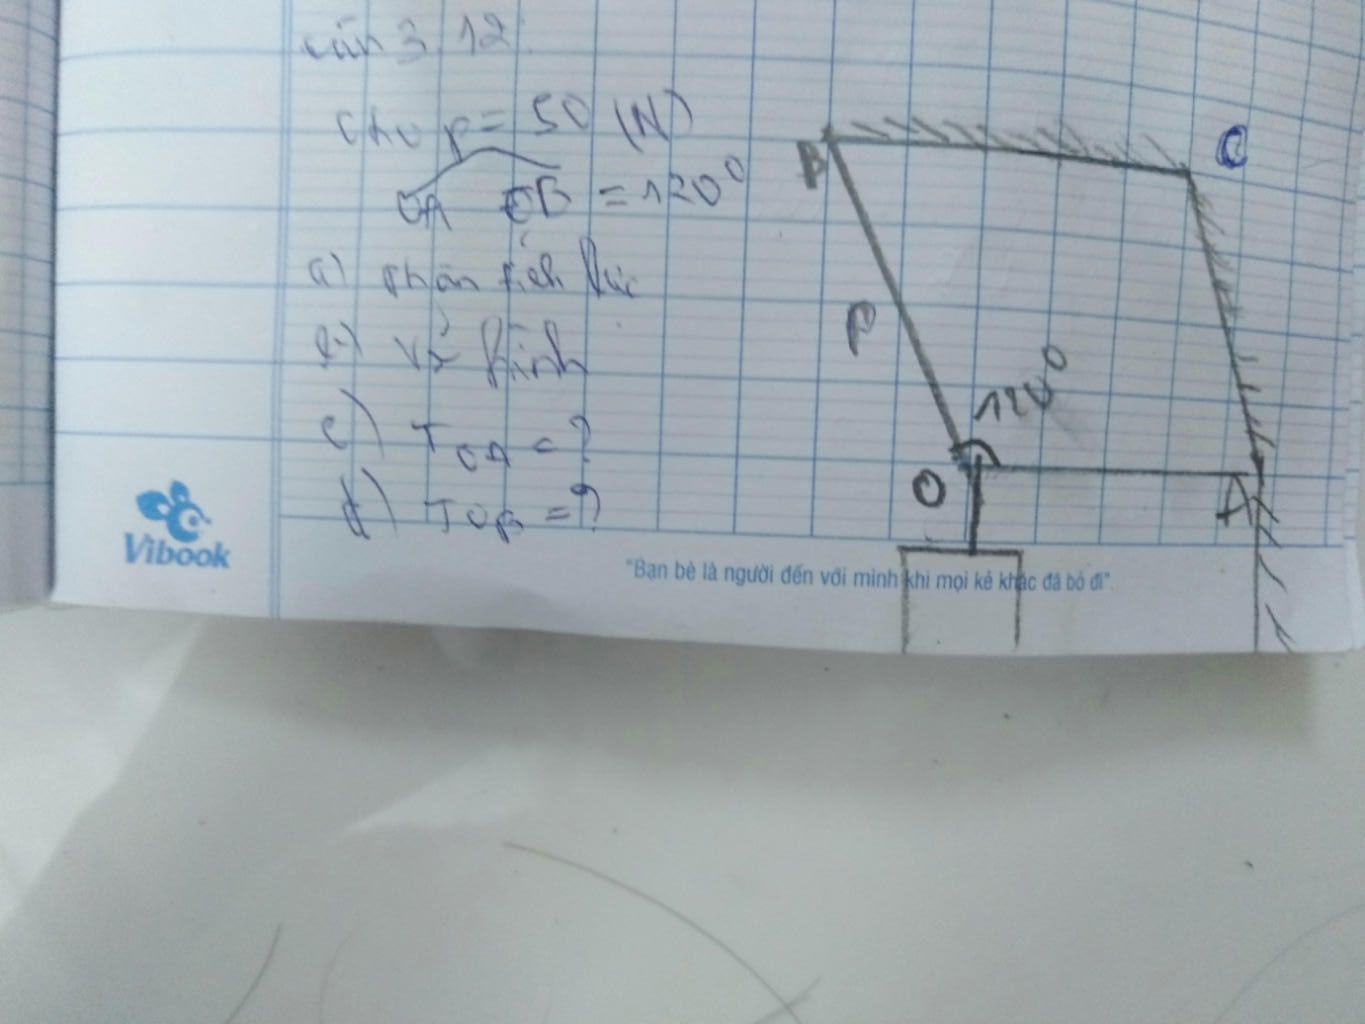 3.12
Cho P = 50 (N)
OA OB = 120°
a) Phân tích lực
b) Vẽ hình
c) T OA = ?
d) T OB = ?
B
C
P
120°
O
A
Vibook
"Bạn bè là người đến với mình khi mọi kẻ khác đã bỏ đi".